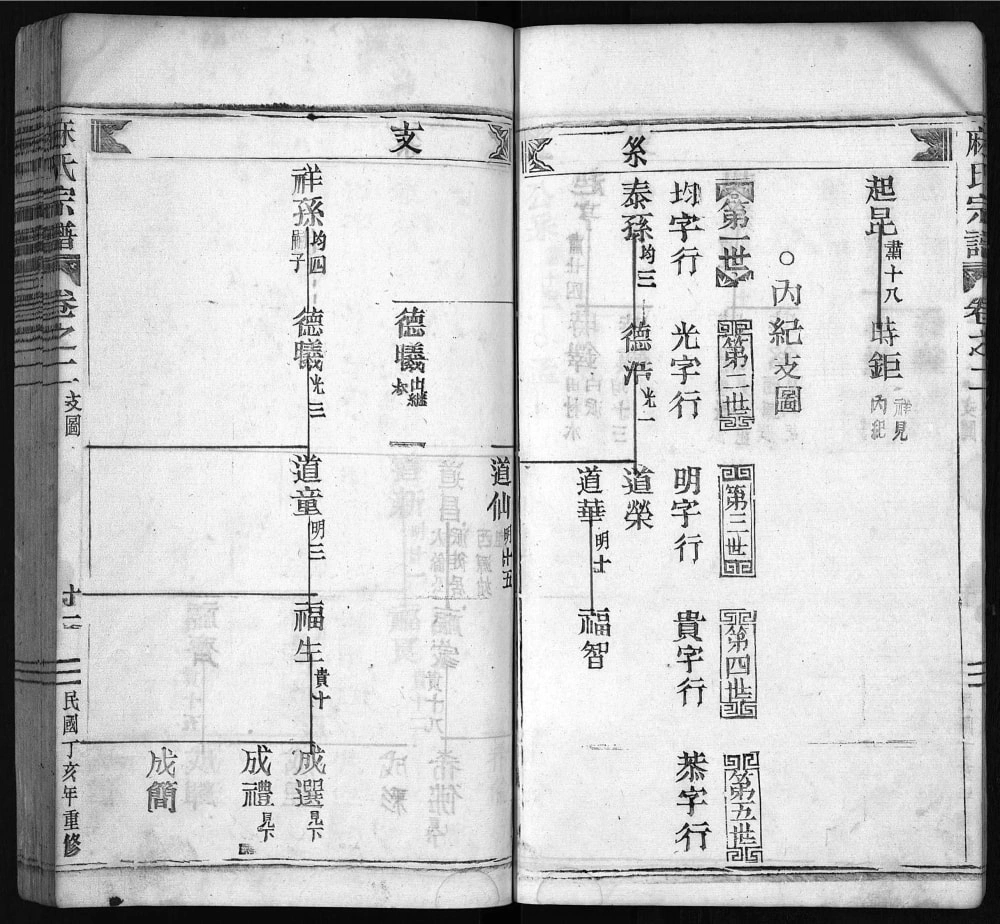 系
起昆
肅十八
時鉅
詳見
內紀
○內紀支圖
第一世
第二世
第三世
第四世
第五世
均字行
光字行
明字行
貴字行
恭字行
泰孫
均三
德浩
光一
道榮
道華
明十
福智
支
道仙
明十五
德曦
出繼
祥孫
均四
嗣子
德曦
光三
道童
明三
福生
貴十
成選
見下
成禮
見下
成簡
麻氏宗譜
卷之二
支圖
民國丁亥年重修